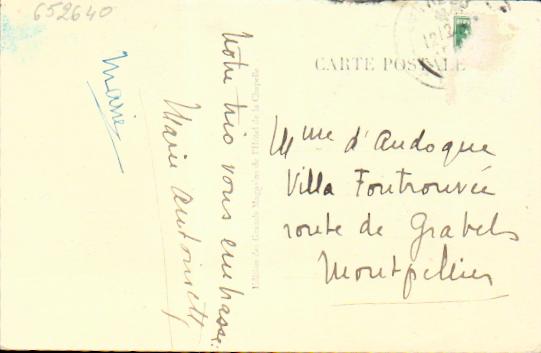 652640
Marie
Notre trio vous embrasse.
Marie Antoinette
Edition des Grands Magasins de l'Hôtel de la Chapelle
CARTE POSTALE
Mme d'Andoque
Villa Fontrouvée
route de Grabels
Montpellier